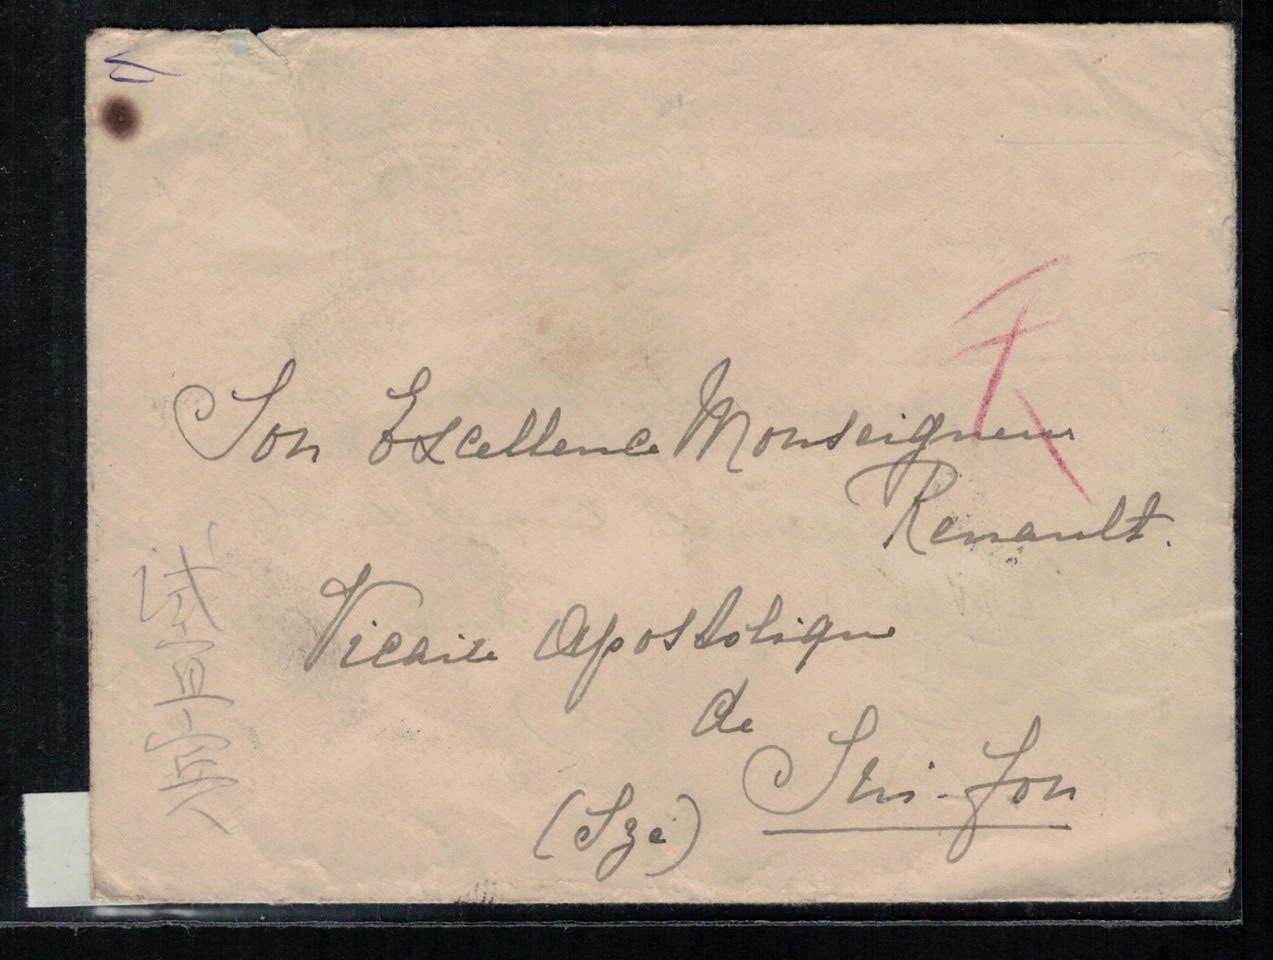 Son Excellence Monseigneur
Renault.
Vicaire Apostolique
de
Siu-fou
(Sze)
试宜宾